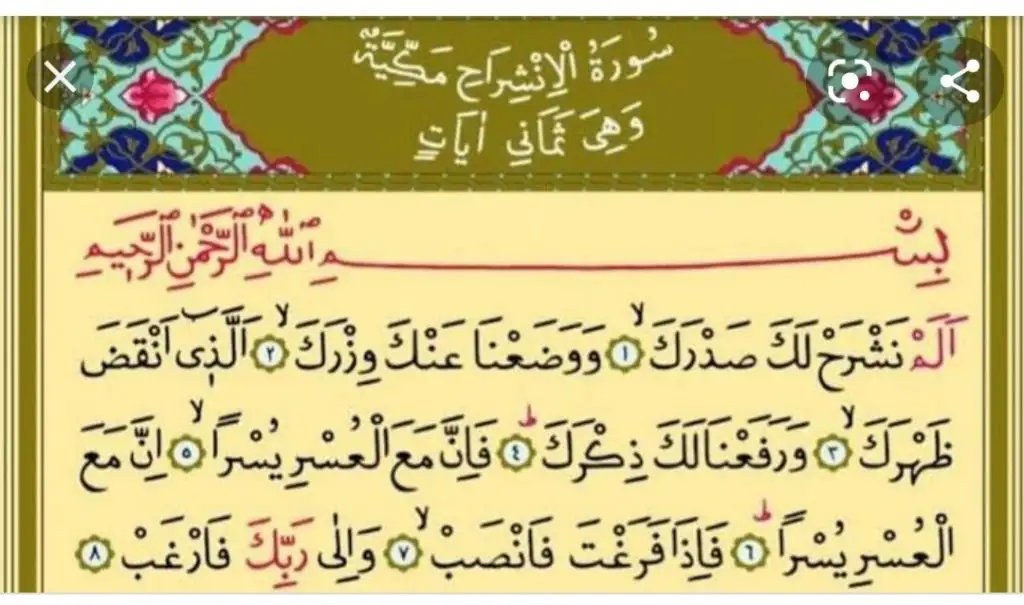 سُورَةُ الْاِنْشِرَاحِ مَكِّيَّةٌ
وَهِىَ ثَمَانِي اٰيَاتٍ
بِسْمِ اللّٰهِ الرَّحْمٰنِ الرَّحِيمِ
اَلَمْ نَشْرَحْ لَكَ صَدْرَكَۙ ﴿١﴾ وَوَضَعْنَا عَنْكَ وِزْرَكَۙ ﴿٢﴾ اَلَّذِٓى اَنْقَضَ
ظَهْرَكَۙ ﴿٣﴾ وَرَفَعْنَا لَكَ ذِكْرَكَۜ ﴿٤﴾ فَاِنَّ مَعَ الْعُسْرِ يُسْرًاۙ ﴿٥﴾ اِنَّ مَعَ
الْعُسْرِ يُسْرًاۜ ﴿٦﴾ فَاِذَا فَرَغْتَ فَانْصَبْۙ ﴿٧﴾ وَاِلٰى رَبِّكَ فَارْغَبْ ﴿٨﴾